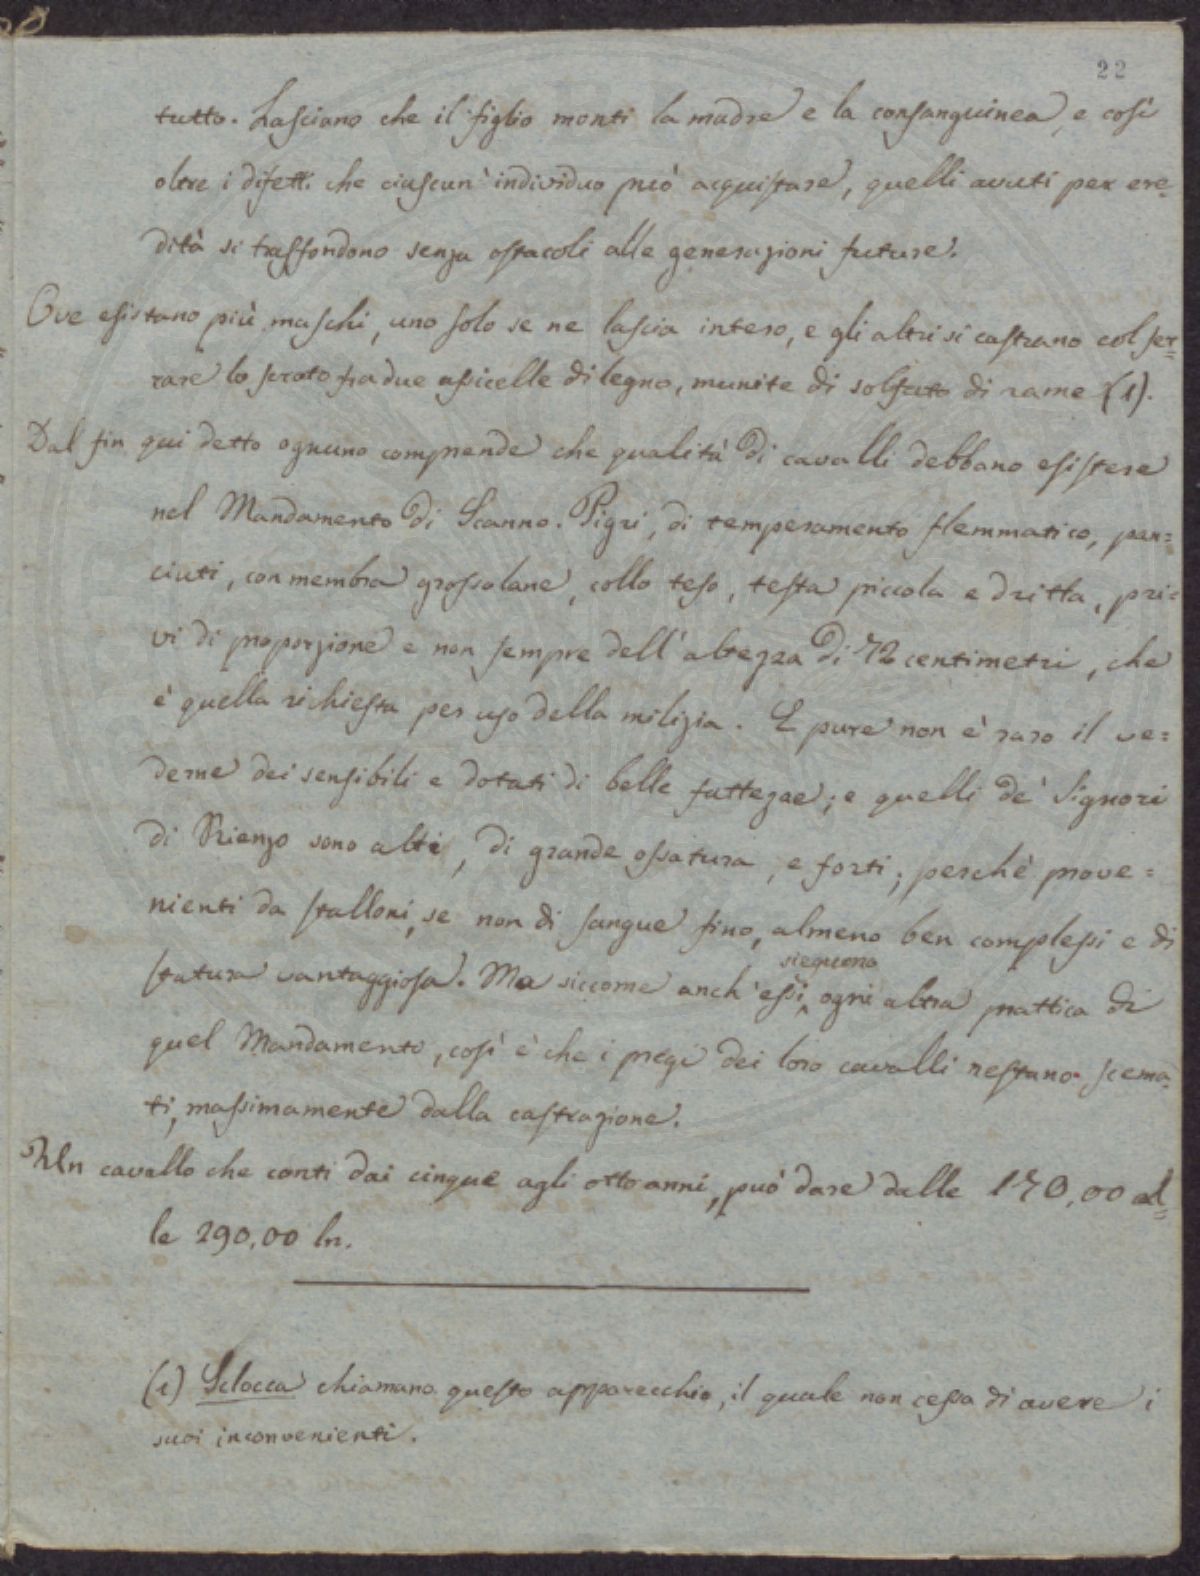 22
tutto. Lasciano che il figlio monti la madre e la consanguinea, e così
oltre i difetti che ciascun' individuo può acquistare, quelli avuti per ere=
dità si trasfondono senza ostacoli alle generazioni future.
Ove esistano più maschi, uno solo se ne lascia intero, e gli altri si castrano col ser=
rare lo scroto fra due assicelle di legno, munite di solfato di rame (1).
Dal fin qui detto ognuno comprende che qualità di cavalli debbano esistere
nel Mandamento di Scanno. Pigri, di temperamento flemmatico, pan=
ciuti, con membra grossolane, collo teso, testa piccola e dritta, pri=
vi di proporzione e non sempre dell'altezza di 72 centimetri, che
è quella richiesta per uso della milizia. E pure non è raro il ve=
derne dei sensibili e dotati di belle fattezze; e quelli de' Signori
di Rienzo sono alti, di grande ossatura, e forti; perchè prove=
nienti da stalloni, se non di sangue fino, almeno ben complessi e di
statura vantaggiosa. Ma siccome anch'essi sieguono ogni altra prattica di
quel Mandamento, così è che i pregi dei loro cavalli restano scema=
ti, massimamente dalla castrazione.
Un cavallo che conti dai cinque agli otto anni, può dare dalle 170,00 al=
le 290,00 ln.
(1) Sclocca chiamano questo apparecchio, il quale non cessa di avere i
suoi inconvenienti.